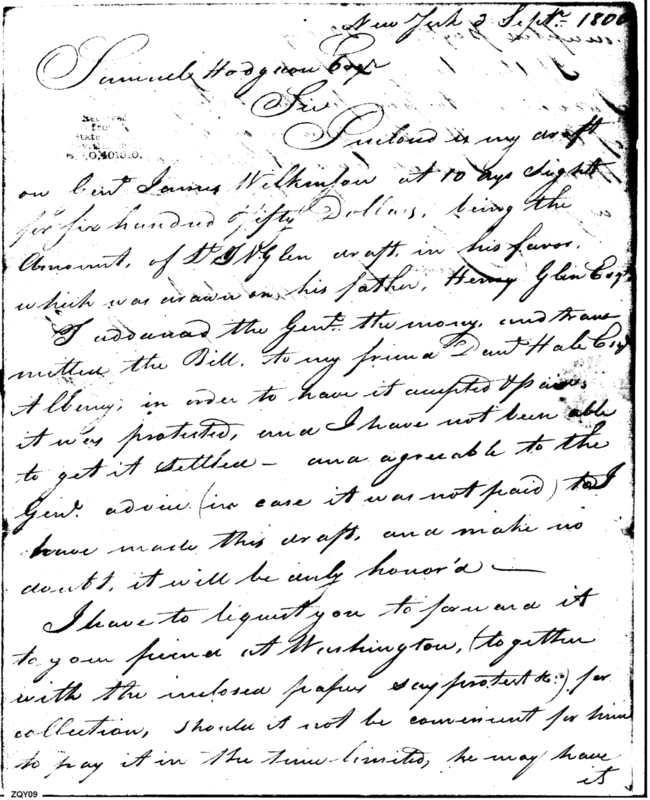 New York 3 Septr. 1800
Samuel Hodgson Esqr
Sir
Inclosed is my draft
on Genl. James Wilkinson at 10 days Sight
for six hundred & fifty Dollars, being the
Amount, of Dr. Glen draft, in his favor,
which was drawn on his father, Henry Glen Esqr
I advanced the Genl. the money, and trans
mitted the Bill, to my friend Danl Hale Esqr
Albany, in order to have it accepted & paid,
it was protested, and I have not been able
to get it settled — and agreeable to the
Genl. advice (in case it was not paid) I
have made this draft, and make no
doubt, it will be duly honor'd —
I have to request you to forward it
to your friend at Washington, (together
with the inclosed papers say protest &c:) for
collection, should it not be convenient for him
to pay it in the time limited, he may have
it
Received
from
State
ZQY09